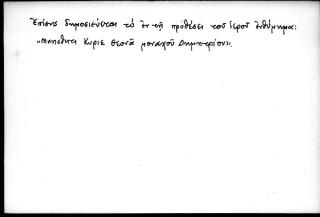 Ἐπίσης δημοσιεύεται τὸ ἐν τῇ προθέσει τοῦ Ἱεροῦ ἐνθύμημα:
"Μνήσθητι Κύριε Θεονᾶ μοναχοῦ Δημητρίου".